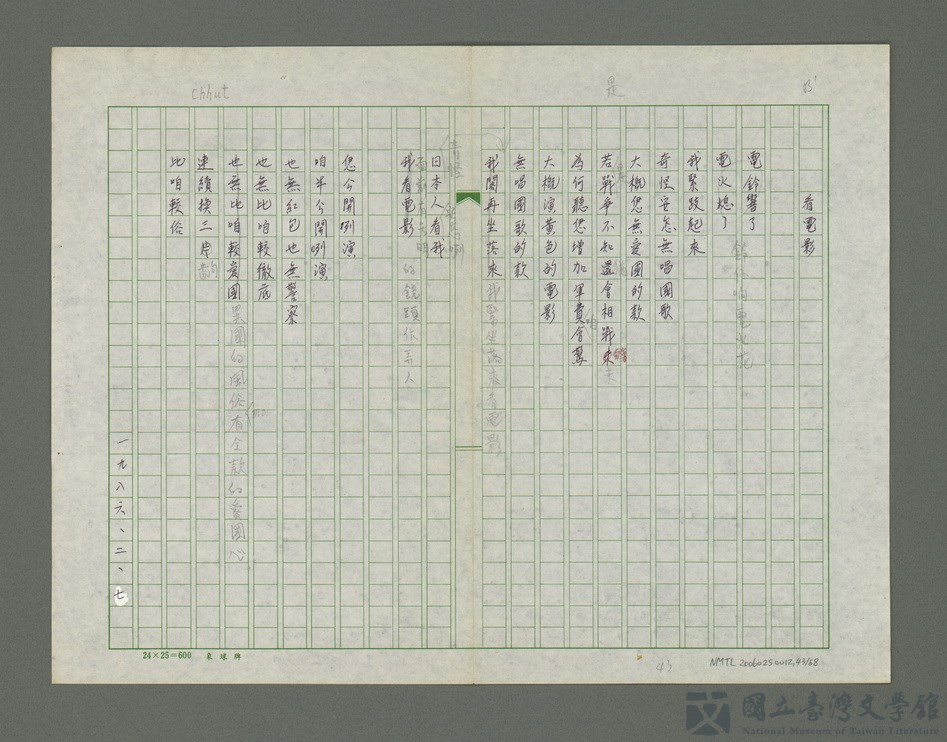 chhut
是
看電影
電鈴響了
電火熄了
我緊跂起來
奇怪安怎無唱國歌
大概您無愛國的款
若戰爭不知還會相戰來
為何聽您增加軍費會驚
大概演黃色的電影
無唱國歌的款
我閣再坐落來 我緊坐落來看電影
日本人看我
我看電影
您今開咧演
咱半今閣咧演
也無紅包也無警察
也無比咱較徹底
也無比咱較愛國 異國的風俗有全款的愛國心
連續換三片齣
比咱較俗
一九八六、二、七
24×25=600
43
NMTL 20060250012,43/68
國立臺灣文學館
National Museum of Taiwan Literature